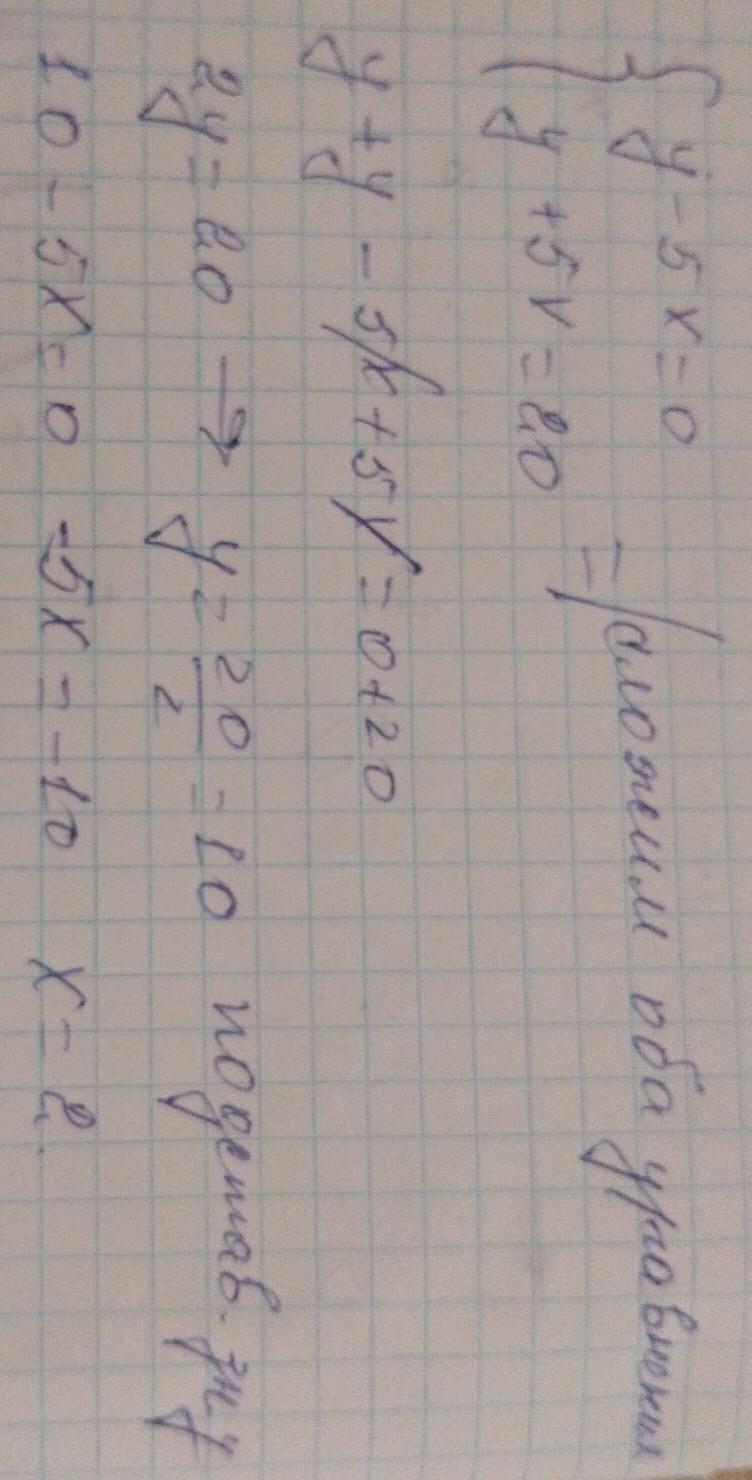 { y - 5x = 0
y + 5x = 20 = / сложим оба уравнения
y + y - 5x + 5x = 0 + 20
2y = 20 → y = 20/2 = 10 подстав. зн. y
10 - 5x = 0 -5x = -10 x = 2.